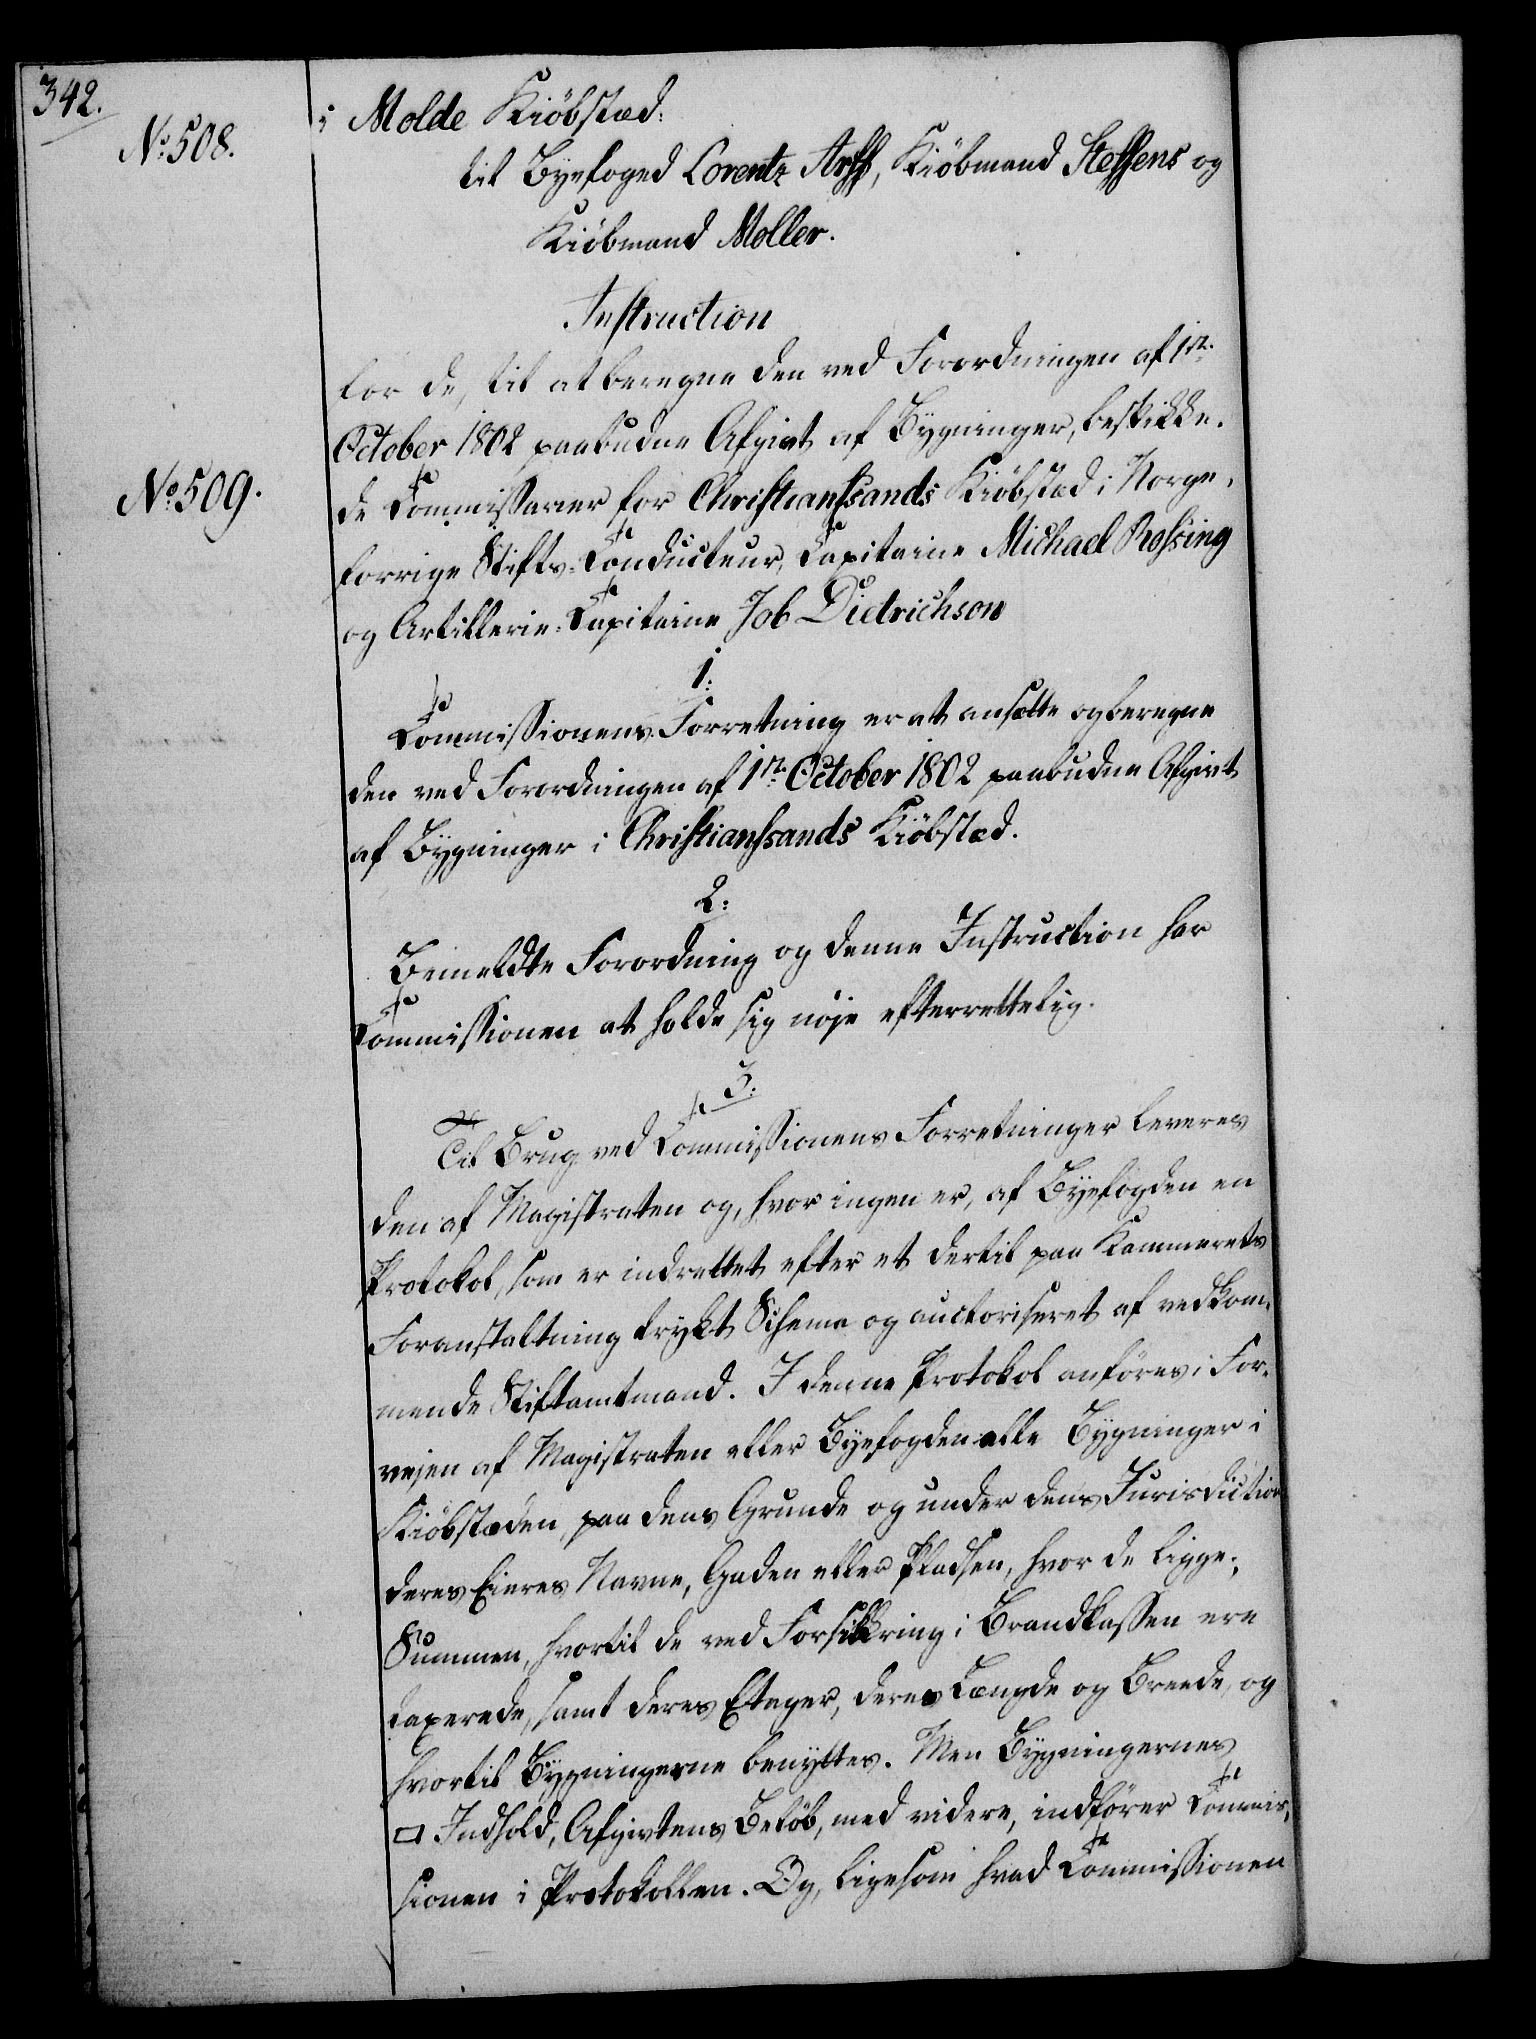 342.
No. 508.
i Molde Kiöbstæd:
til Byefoged Lorentz Arff, Kiöbmand Steffens og
Kiöbmand Moller.
Instruction
for de, til at beregne den ved Forordningen af 1ste
October 1802 paabudne Afgivt af Bygninger, beskikke-
No. 509.
de Commissarier for Christianssands Kiöbstæd i Norge,
forrige Stifts-Conducteur, Capitaine Michael Rossing
og Artillerie-Capitaine Job Dietrichson
1:
Commissionens Forretning er at ansætte og beregne
den ved Forordningen af 1ste October 1802 paabudne Afgivt
af Bygninger i Christianssands Kiöbstæd.
2:
Bemeldte Forordning og denne Instruction har
Commissionen at holde sig nöje efterrettelig.
3:
Til Brug ved Commissionens Forretninger leveres
den af Magistraten og, hvor ingen er, af Byefogden en
Protokol, som er indrettet efter et dertil paa Kammerets
Foranstaltning trykt Schema og auctoriseret af vedkom-
mende Stiftamtmand. I denne Protokol anföres i For-
vejen af Magistraten eller Byefogden alle Bygninger i
Kiöbstæden, paa dens Grunde og under dens Jurisdiction
deres Eieres Navne, Gaden eller Pladsen, hvor de ligge;
Summen, hvortil de ved Forsikkring i Brandkassen ere
taxerede, samt deres Etager, deres Længde og Breede, og
hvortil Bygningerne benyttes. Men Bygningernes
□ Indhold, Afgivtens Belöb, med videre, indförer Commis-
sionen i Protokollen. Og, ligesom hvad Commissionen